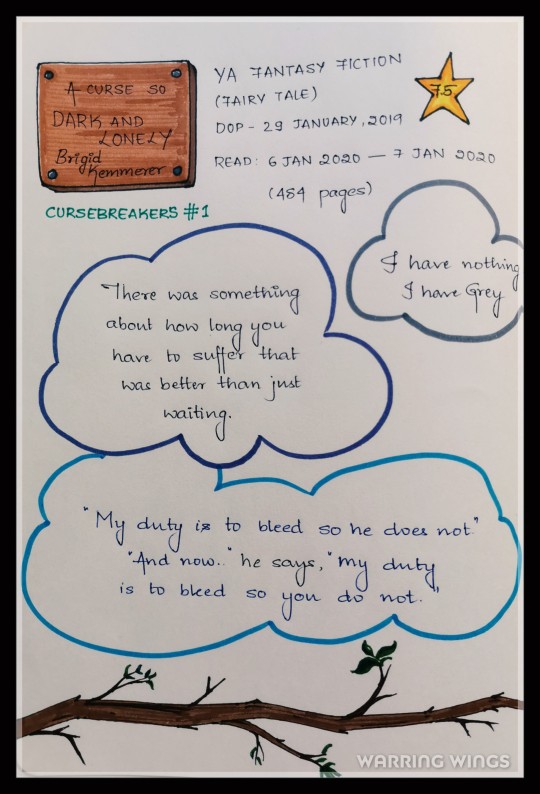 A CURSE SO
DARK AND
LONELY
Brigid
Kemmerer
CURSEBREAKERS #1
YA FANTASY FICTION
(FAIRY TALE)
DOP - 29 JANUARY, 2019
READ: 6 JAN 2020 — 7 JAN 2020
(484 pages)
7.5
I have nothing
I have Grey
There was something
about how long you
have to suffer that
was better than just
waiting.
"My duty is to bleed so he does not."
"And now.." he says, "my duty
is to bleed so you do not."
WARRING WINGS